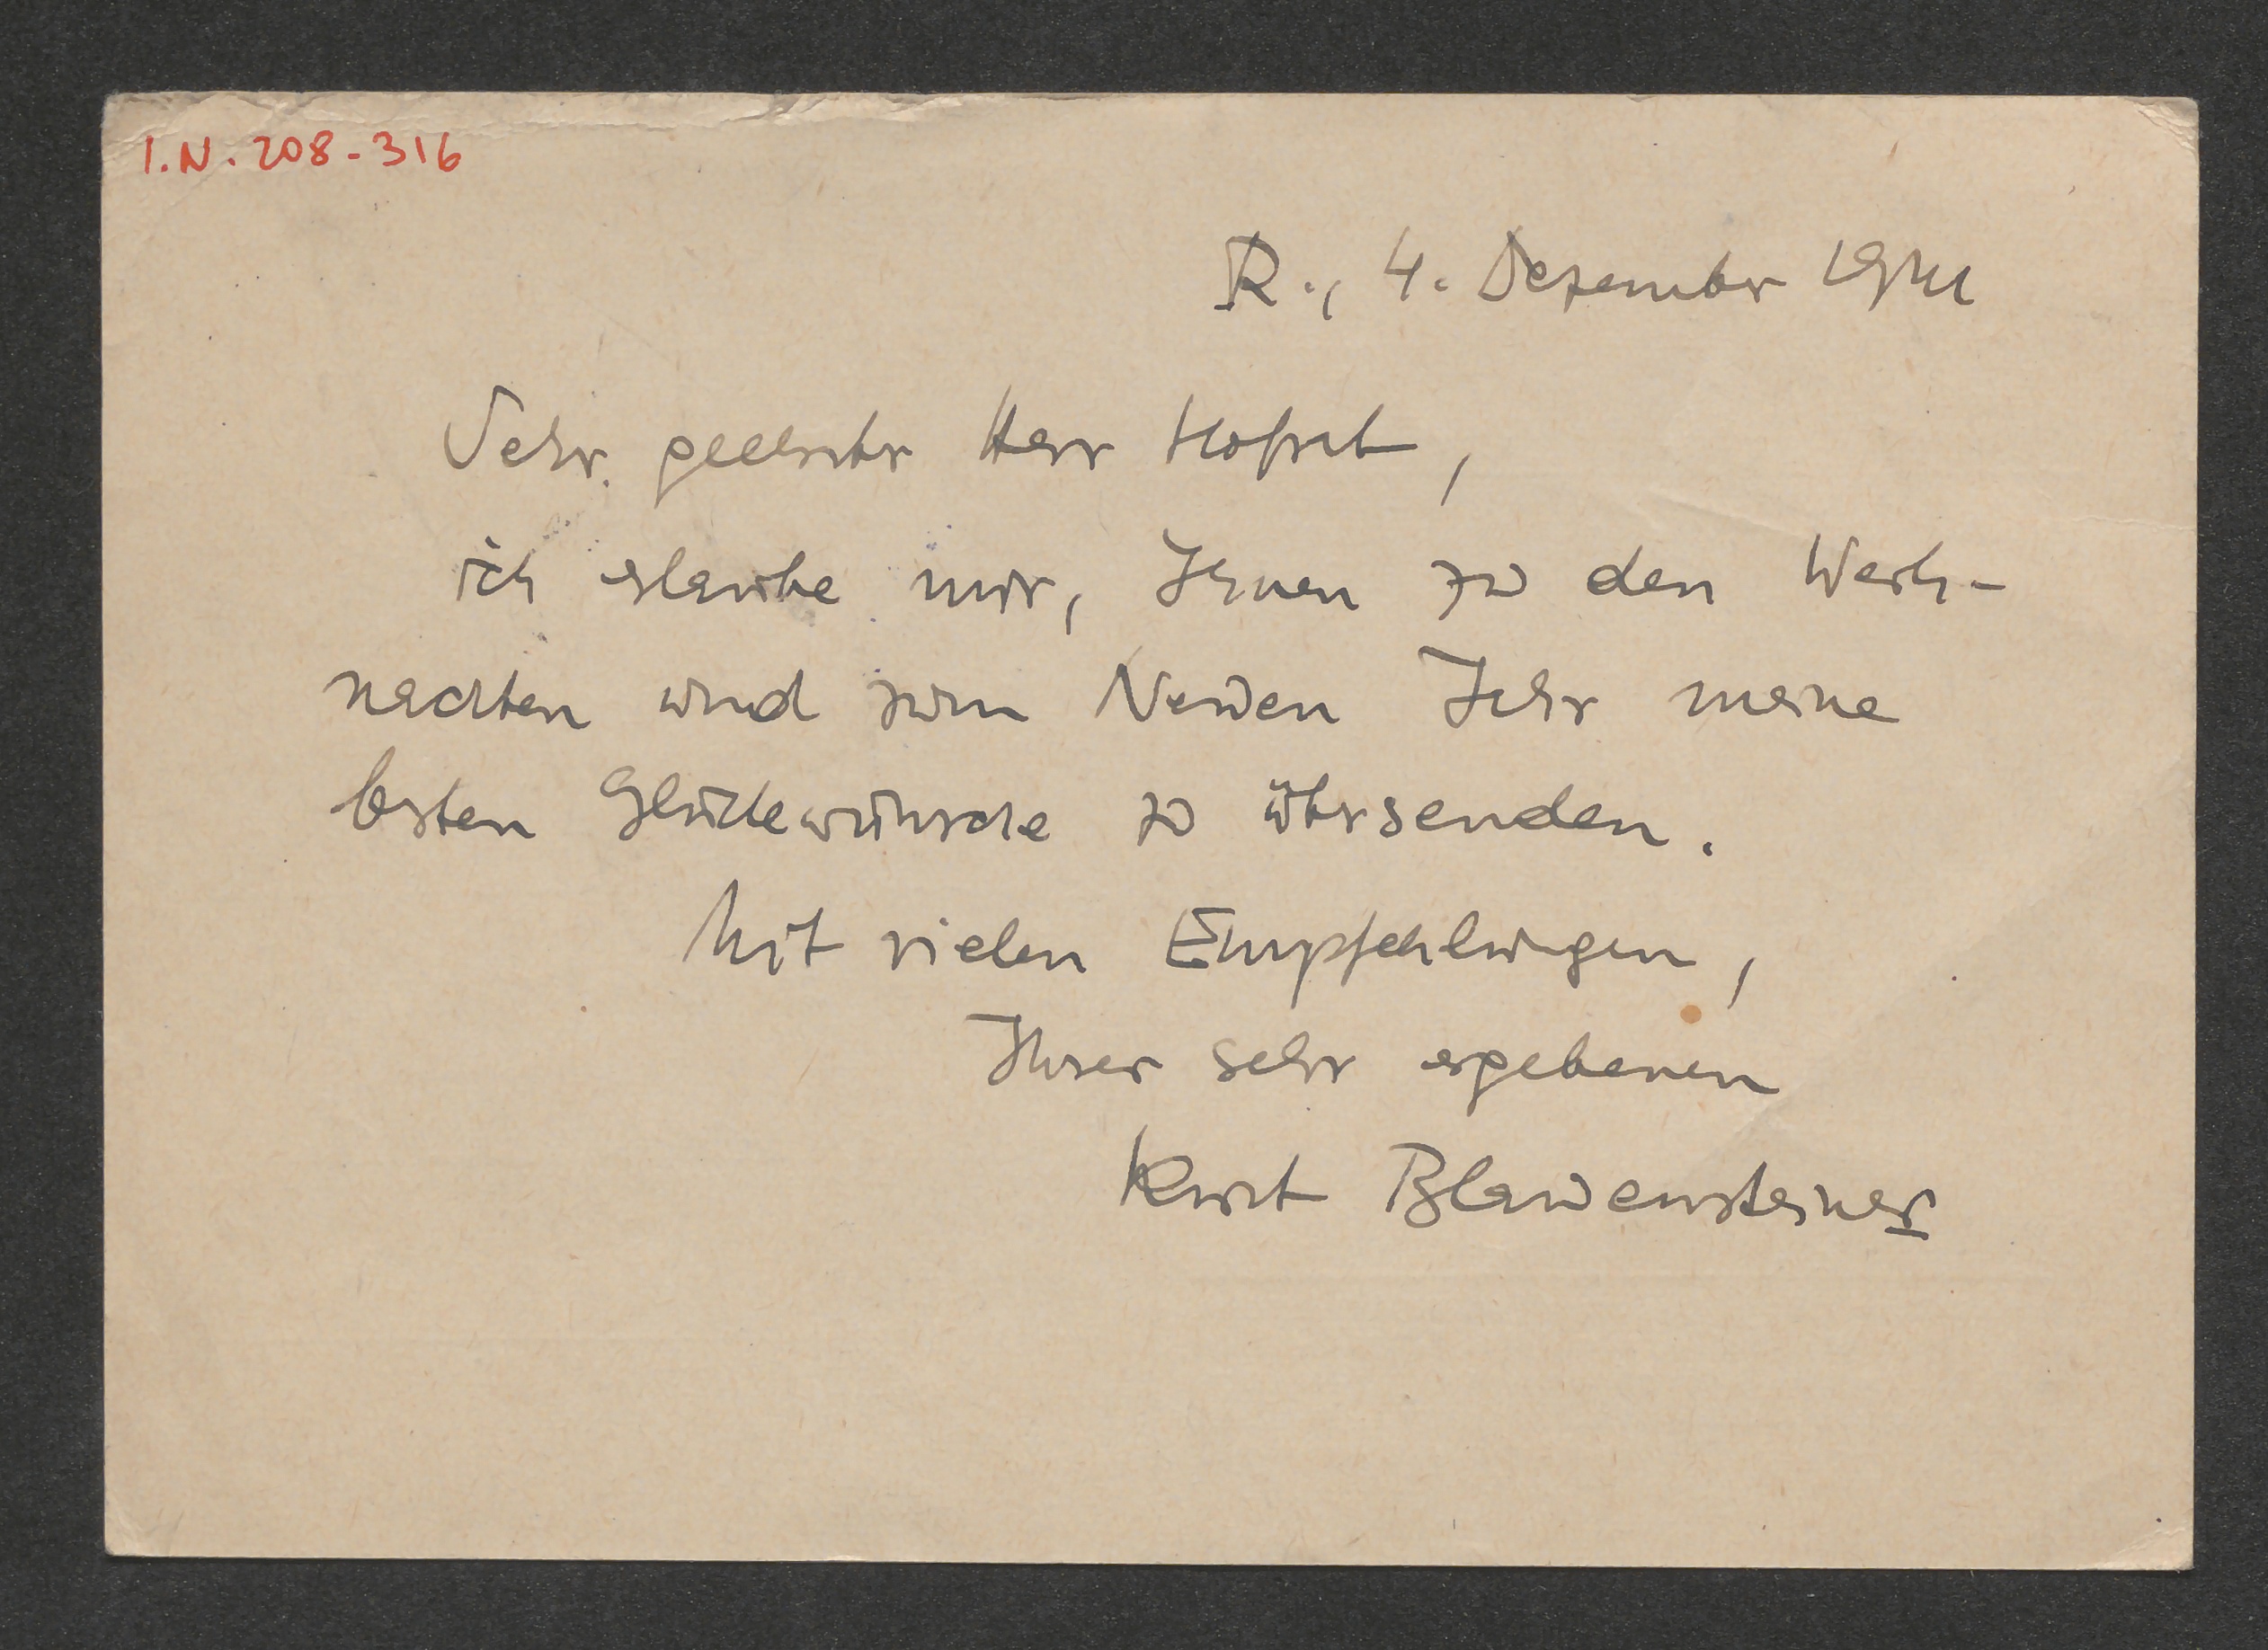 I.N. 208-316
R., 4. Dezember 1941
Sehr geehrter Herr Hofrat,
ich erlaube mir, Ihnen zu den Weih-
nachten und zum Neuen Jahr meine
besten Glückwünsche zu übersenden.
Mit vielen Empfehlungen,
Ihrer sehr ergebenen
Kurt Blauensteiner